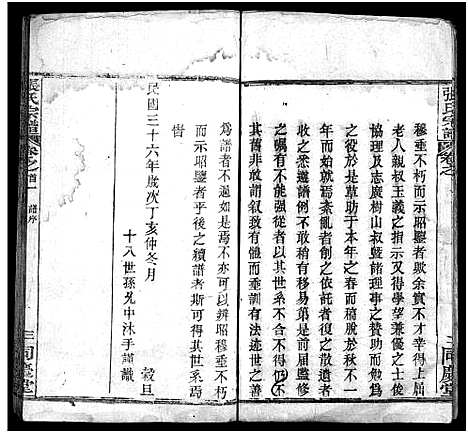 張氏宗譜
卷之
同慶堂
穆垂不朽而示昭鑒者歟余實不才幸得上屆
老人親叔王義之指示又得學望兼優之士俊
協理及志廣樹山叔暨諸理事之贊助而成
之役於是草助于本年之春而稿脫於秋
年而始就焉紊亂者創之依託者復之
收之悉遵譜例不敢稍有移易第是前屆監修
之囑有不能從者以其世系不合不
其舊非敢謂有法述而垂訓有法迹世之
為譜者不過如是焉不亦可以辨昭穆垂不朽
而示昭鑒者乎後之續譜者斯可得其世系焉
旹
民國三十六年歲次丁亥仲冬月 穀旦
十八世孫允中沐手謹識
張氏宗譜
卷之首一
譜序
三
同慶堂